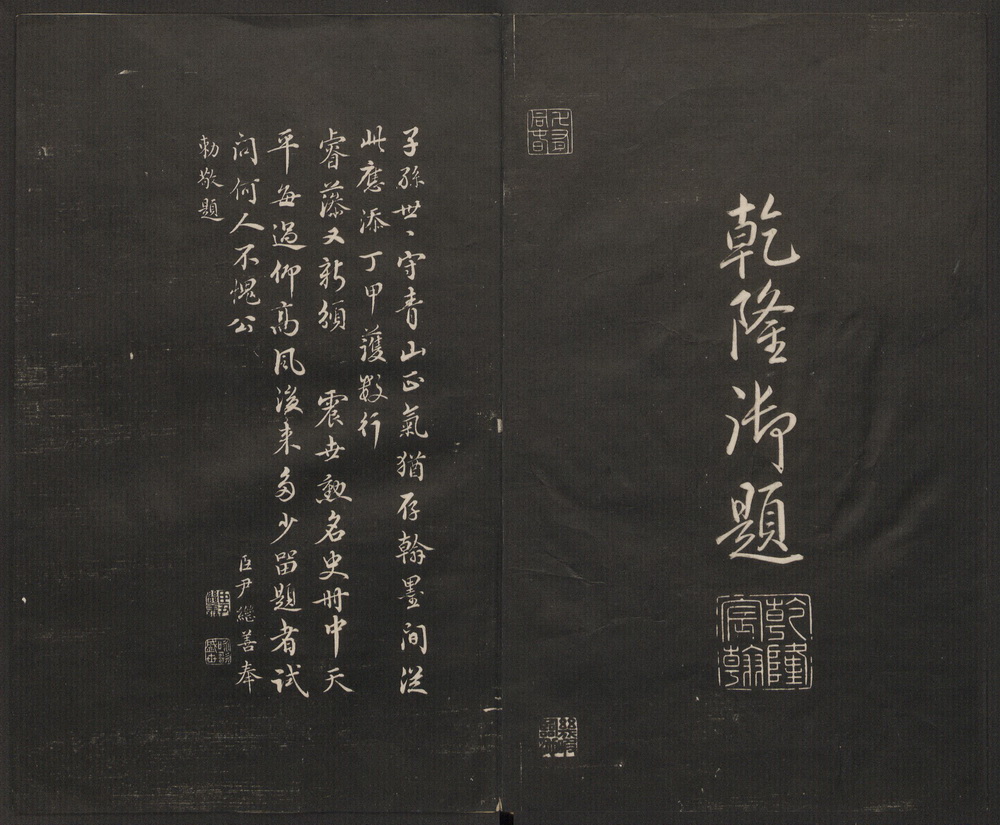 乾隆御題
乾隆宸翰
子孫世〻守青山正氣猶存翰墨間從
此應添丁甲護數行
睿藻又新頒　震世勲名史册中天
平每過仰高風後来多少留題者試
问何人不愧公
臣尹繼善奉
勅敬題